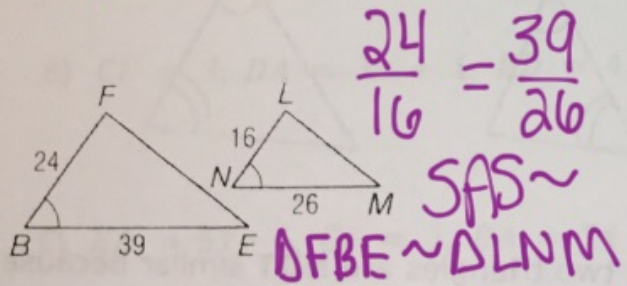 F
24
B
39
E
L
16
N
26
M
24/16 = 39/26
SAS~
ΔFBE ~ ΔLNM